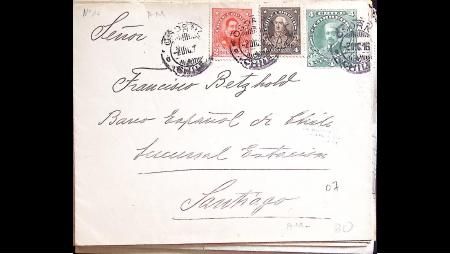 Señor
Francisco Betzhold
Banco Español de Chile
Sucursal Estacion
Santiago
07
80